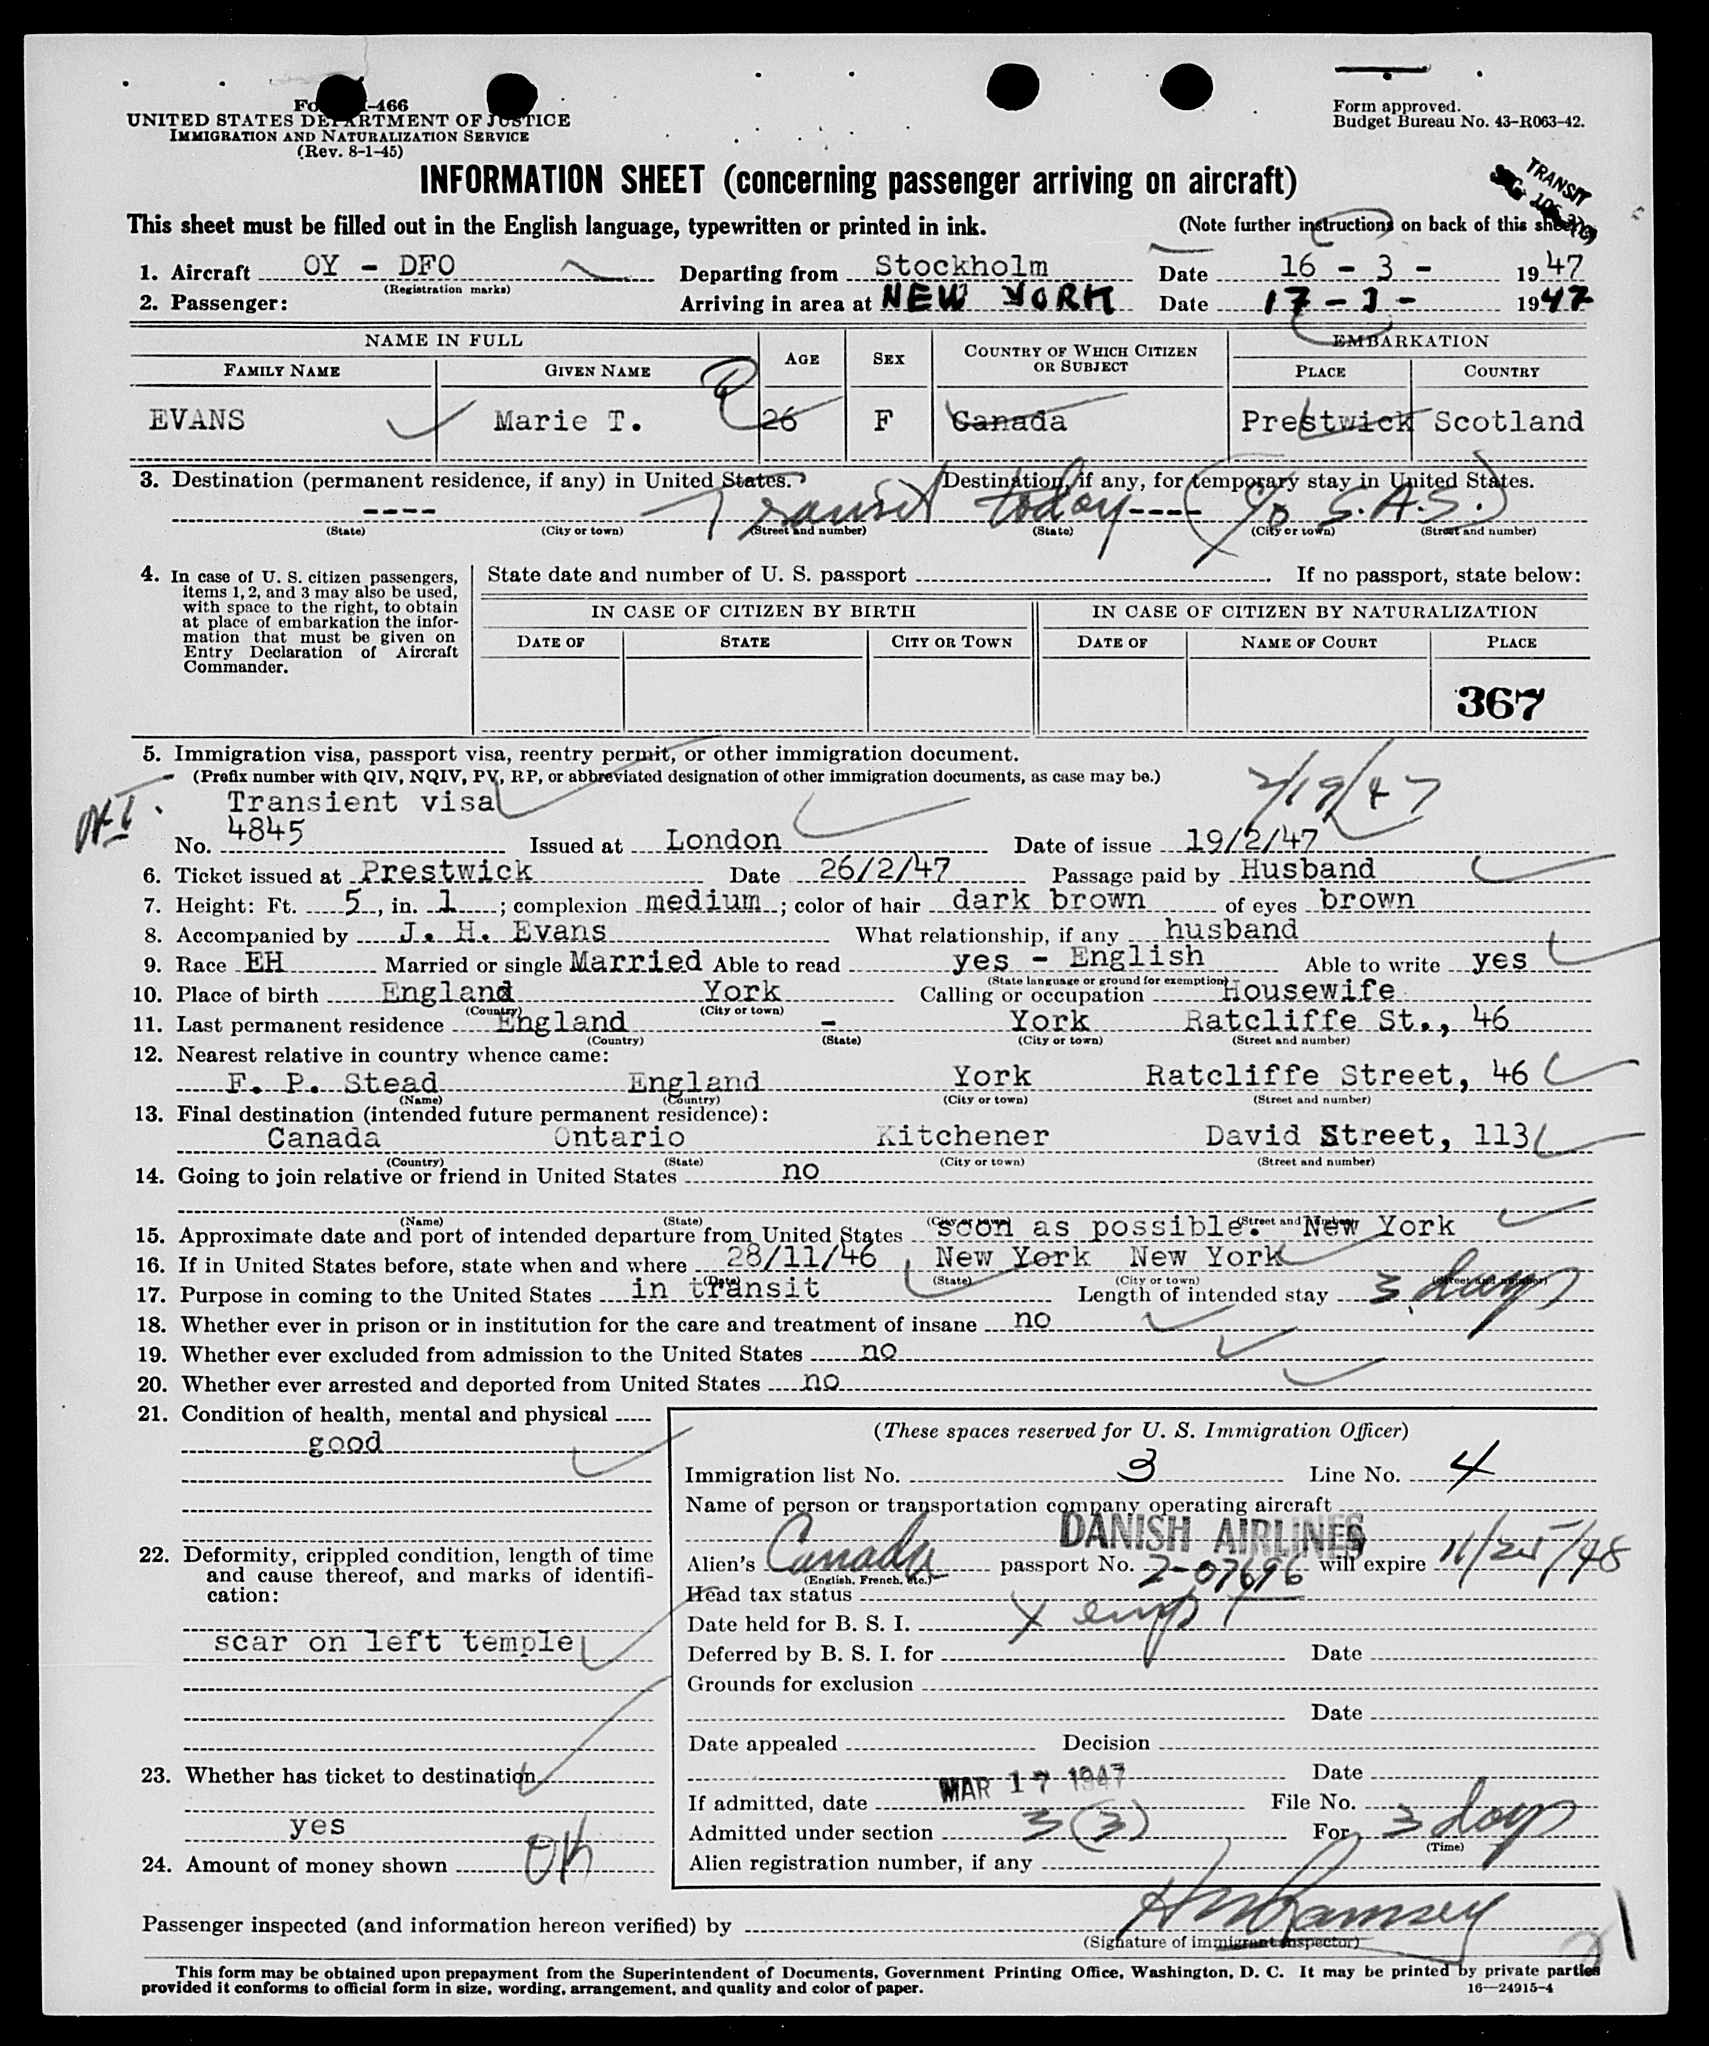 Form I-466
UNITED STATES DEPARTMENT OF JUSTICE
IMMIGRATION AND NATURALIZATION SERVICE
(Rev. 8-1-45)
Form approved.
Budget Bureau No. 43-R063-42.
INFORMATION SHEET (concerning passenger arriving on aircraft)
TRANSIT
This sheet must be filled out in the English language, typewritten or printed in ink. (Note further instructions on back of this sheet)
1. Aircraft OY - DFO Departing from Stockholm Date 16 - 3 - 1947
(Registration marks)
2. Passenger: Arriving in area at NEW YORK Date 17 - 3 - 1947
NAME IN FULL AGE SEX COUNTRY OF WHICH CITIZEN OR SUBJECT EMBARKATION
FAMILY NAME GIVEN NAME PLACE COUNTRY
EVANS Marie T. 26 F Canada Prestwick Scotland
3. Destination (permanent residence, if any) in United States. Destination, if any, for temporary stay in United States.
---- Transit today ---- (c/o S.A.S.)
(State) (City or town) (Street and number) (State) (City or town) (Street and number)
4. In case of U. S. citizen passengers, items 1, 2, and 3 may also be used, with space to the right, to obtain at place of embarkation the information that must be given on Entry Declaration of Aircraft Commander.
State date and number of U. S. passport . If no passport, state below:
IN CASE OF CITIZEN BY BIRTH IN CASE OF CITIZEN BY NATURALIZATION
DATE OF STATE CITY OR TOWN DATE OF NAME OF COURT PLACE
367
5. Immigration visa, passport visa, reentry permit, or other immigration document.
(Prefix number with QIV, NQIV, PV, RP, or abbreviated designation of other immigration documents, as case may be.)
2/19/47
Transient visa
No. 4845 Issued at London Date of issue 19/2/47
6. Ticket issued at Prestwick Date 26/2/47 Passage paid by Husband
7. Height: Ft. 5, in. 1; complexion medium; color of hair dark brown of eyes brown
8. Accompanied by J. H. Evans What relationship, if any husband
9. Race EH Married or single Married Able to read yes - English Able to write yes
(State language or ground for exemption)
10. Place of birth England York Calling or occupation Housewife
(Country) (City or town)
11. Last permanent residence England - York Ratcliffe St., 46
(Country) (State) (City or town) (Street and number)
12. Nearest relative in country whence came:
F. P. Stead England York Ratcliffe Street, 46
(Name) (Country) (City or town) (Street and number)
13. Final destination (intended future permanent residence):
Canada Ontario Kitchener David Street, 113
(Country) (State) (City or town) (Street and number)
14. Going to join relative or friend in United States no
(Name) (State) (City or town) (Street and number)
15. Approximate date and port of intended departure from United States soon as possible. New York
16. If in United States before, state when and where 28/11/46 New York New York
(Date) (State) (City or town) (Street and number)
17. Purpose in coming to the United States in transit Length of intended stay 3 days
18. Whether ever in prison or in institution for the care and treatment of insane no
19. Whether ever excluded from admission to the United States no
20. Whether ever arrested and deported from United States no
21. Condition of health, mental and physical
good
22. Deformity, crippled condition, length of time and cause thereof, and marks of identification:
scar on left temple
23. Whether has ticket to destination
yes
24. Amount of money shown OK
(These spaces reserved for U. S. Immigration Officer)
Immigration list No. 3 Line No. 4
Name of person or transportation company operating aircraft
DANISH AIRLINES
Alien's Canada passport No. 2-07696 will expire 11/25/48
(English, French, etc.)
Head tax status
Date held for B. S. I. X emp
Deferred by B. S. I. for Date
Grounds for exclusion
Date
Date appealed Decision
Date
If admitted, date MAR 17 1947 File No.
Admitted under section 3 (3) For 3 days
(Time)
Alien registration number, if any
Passenger inspected (and information hereon verified) by H M Ramsey
(Signature of immigrant inspector)
This form may be obtained upon prepayment from the Superintendent of Documents, Government Printing Office, Washington, D. C. It may be printed by private parties
provided it conforms to official form in size, wording, arrangement, and quality and color of paper. 16—24915-4